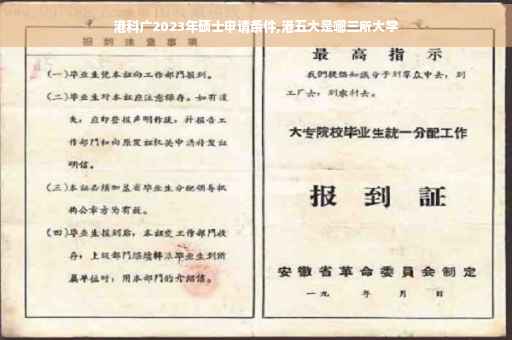 港科广2023年硕士申请条件,港五大是哪三所大学
报到注意事项
(一)毕业生凭本证向工作部门报到。
(二)毕业生对本证应注意保存。如有遗
失,应即登报声明作废,并报告工
作部门和向原发证机关申请补发证
明信。
(三)本证必须加盖省毕业生分配领导机
构公章方为有效。
(四)毕业生报到后,本证交工作部门收
存;上级部门继续转派毕业生到所
属单位时,用本部门的介绍信。
最高指示
我们提倡知识分子到群众中去,到
工厂去,到农村去。
大专院校毕业生统一分配工作
报到証
安徽省革命委員会制定
一九 年 月 日